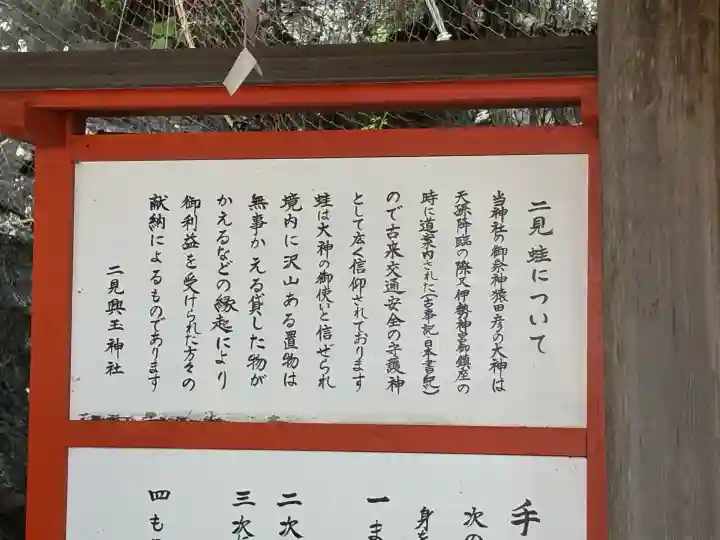 二見蛙について
当神社の御祭神猿田彦の大神は
天孫降臨の際又伊勢神宮御鎮座の
時に道案内された(古事記日本書紀)
ので古来交通安全の守護神
として広く信仰されております
蛙は大神の御使いと信ぜられ
境内に沢山ある置物は
無事かえる貸した物が
かえるなどの縁起により
御利益を受けられた方々の
献納によるものであります
二見興玉神社
手
次の
身を
一ま
二次
三次に
四も